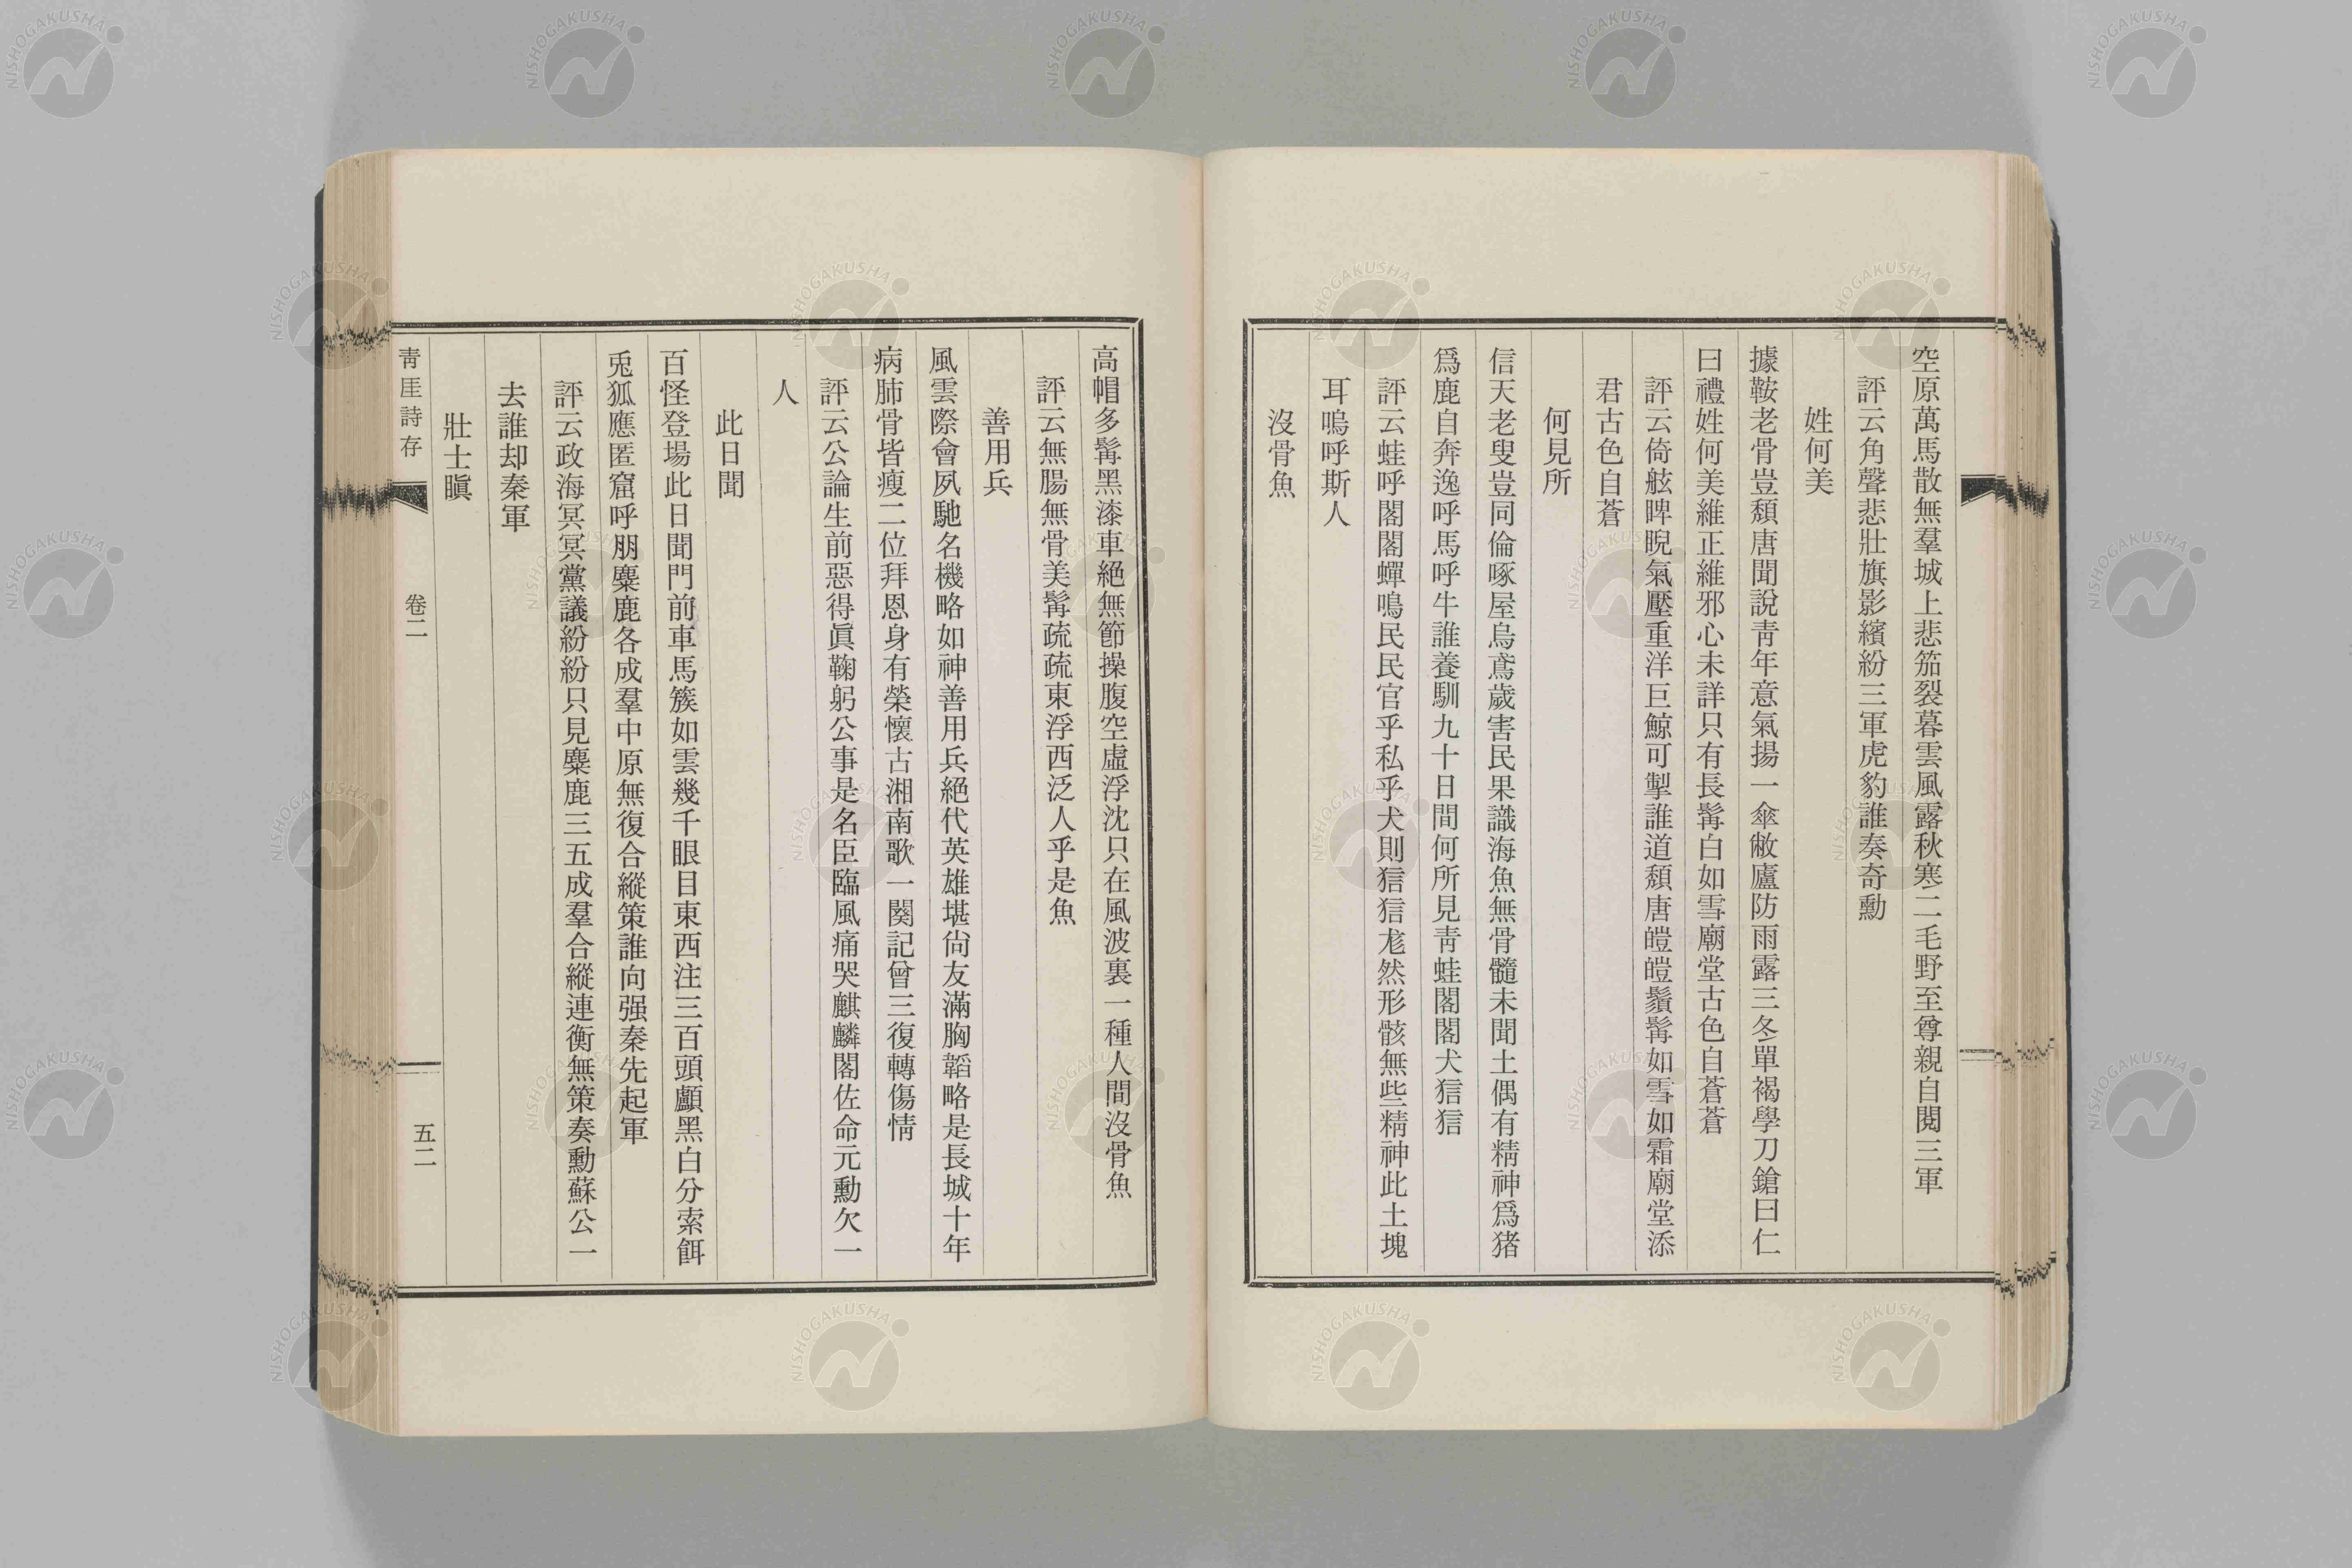 空原萬馬散無羣城上悲笳裂暮雲風露秋寒二毛野至尊親自閱三軍
評云角聲悲壯旗影繽紛三軍虎豹誰奏奇勳
姓何美
據鞍老骨豈頽唐聞說靑年意氣揚一傘敝廬防雨露三冬單褐學刀鎗曰仁
曰禮姓何美維正維邪心未詳只有長髯白如雪廟堂古色自蒼蒼
評云倚舷睥睨氣壓重洋巨鯨可掣誰道頽唐皚皚鬚髯如雪如霜廟堂添
君古色自蒼
何見所
信天老叟豈同倫啄屋烏鳶歲害民果識海魚無骨髓未聞土偶有精神爲猪
爲鹿自奔逸呼馬呼牛誰養馴九十日間何所見靑蛙閣閣犬狺狺
評云蛙呼閣閣蟬鳴民民官乎私乎犬則狺狺尨然形骸無些精神此土塊
耳嗚呼斯人
沒骨魚
高帽多髯黑漆車絕無節操腹空虛浮沈只在風波裏一種人間沒骨魚
評云無腸無骨美髯疏疏東浮西泛人乎是魚
善用兵
風雲際會夙馳名機略如神善用兵絕代英雄堪尙友滿胸韜略是長城十年
病肺骨皆瘦二位拜恩身有榮懷古湘南歌一闋記曾三復轉傷情
評云公論生前惡得眞鞠躬公事是名臣臨風痛哭麒麟閣佐命元勳欠一
人
此日聞
百怪登場此日聞門前車馬簇如雲幾千眼目東西注三百頭顱黑白分索餌
兎狐應匿窟呼朋麋鹿各成羣中原無復合縱策誰向强秦先起軍
評云政海冥冥黨議紛紛只見麋鹿三五成羣合縱連衡無策奏勳蘇公一
去誰却秦軍
壯士瞋
靑厓詩存
卷二
五二
NISHOGAKUSHA